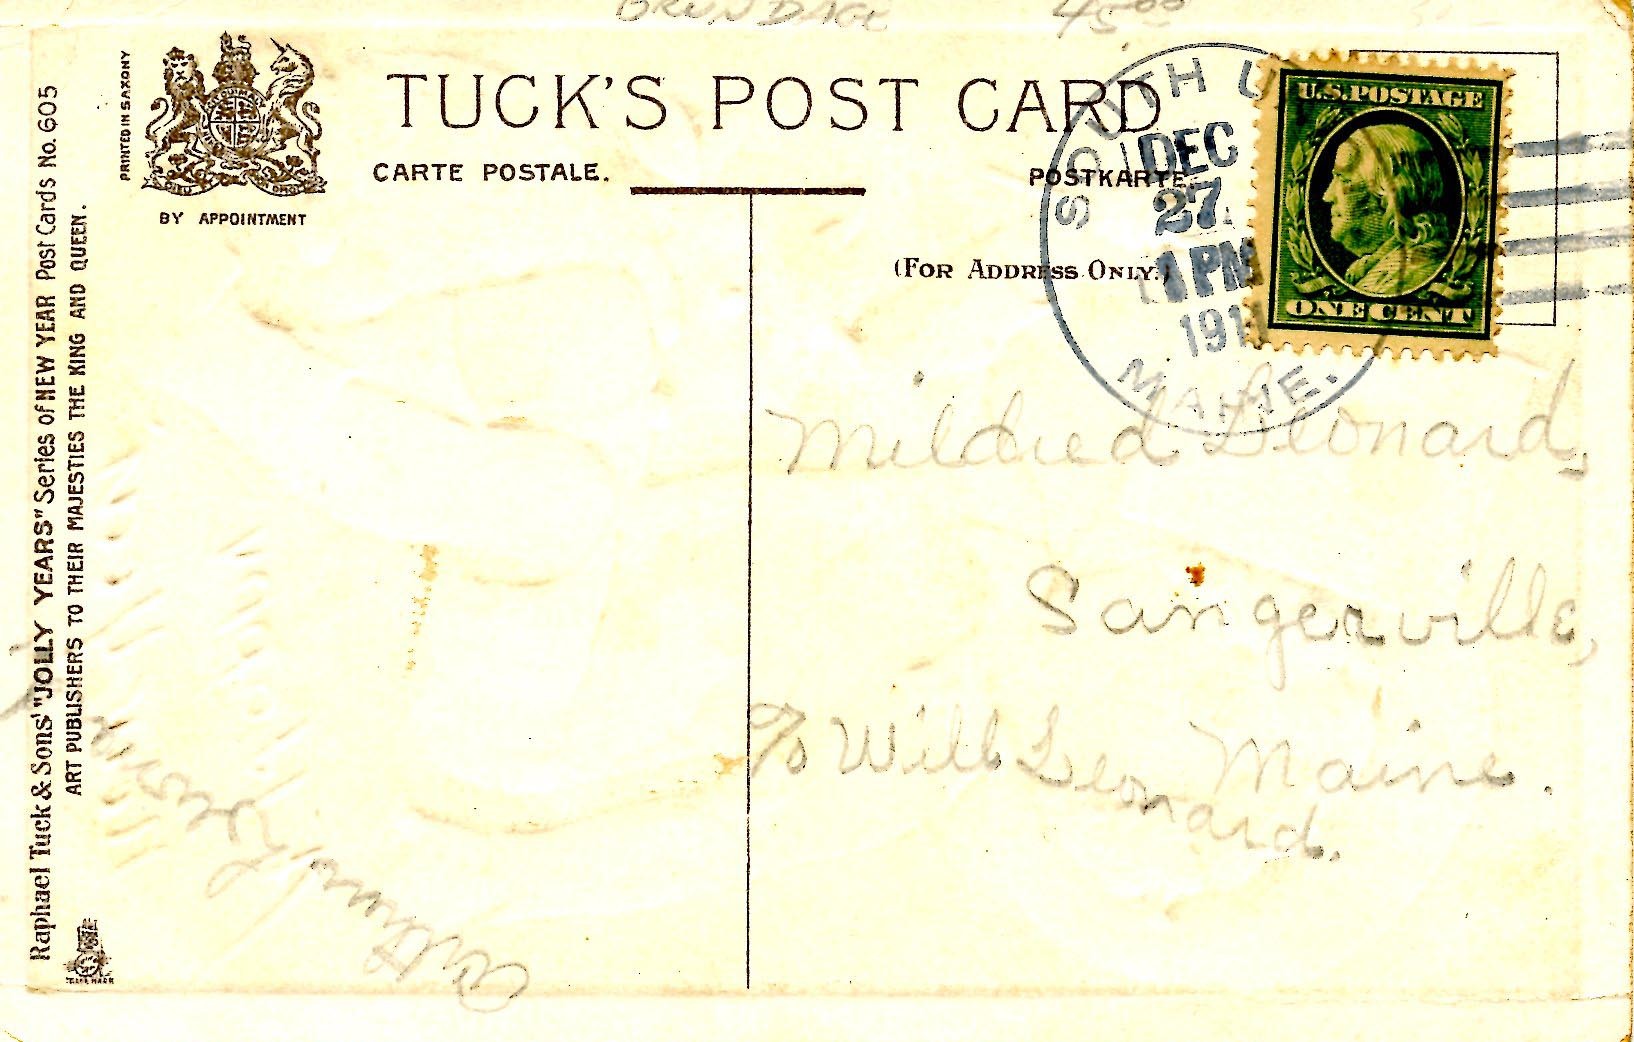 BRUNDAGE 45⁰⁰
PRINTED IN SAXONY
BY APPOINTMENT
TUCK'S POST CARD
CARTE POSTALE.
POSTKARTE.
(FOR ADDRESS ONLY.)
SOUTH
DEC
27
1 PM
191
MAINE.
U.S. POSTAGE
ONE CENT
Raphael Tuck & Sons' "JOLLY YEARS" Series of NEW YEAR Post Cards No. 605
ART PUBLISHERS TO THEIR MAJESTIES THE KING AND QUEEN.
TRADE MARK
Mildred Leonard,
Sangerville,
Maine.
c/o Will Leonard.
Arthur